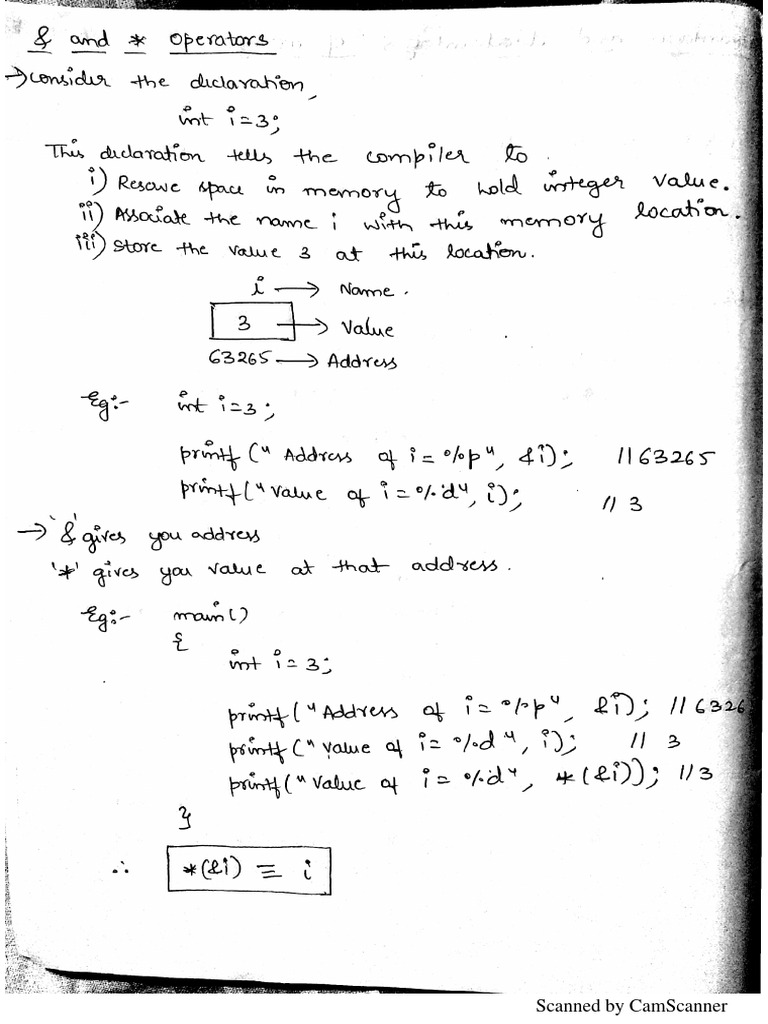 & and * operators
→ consider the declaration,
int i=3;
This declaration tells the compiler to.
i) Reserve space in memory to hold integer value.
ii) Associate the name i with this memory location.
iii) Store the value 3 at this location.
i → Name.
3 → Value
63265 → Address
Eg:- int i=3;
printf ("Address of i = %p", &i); //63265
printf("value of i = %d", i); // 3
→ '&' gives you address
'*' gives you value at that address.
Eg:- main()
{
int i=3;
printf("Address of i = %p", &i); // 6326
printf ("value of i = %d", i); // 3
printf("value of i = %d", *(&i)); //3
}
∴ *(&i) ≡ i
Scanned by CamScanner